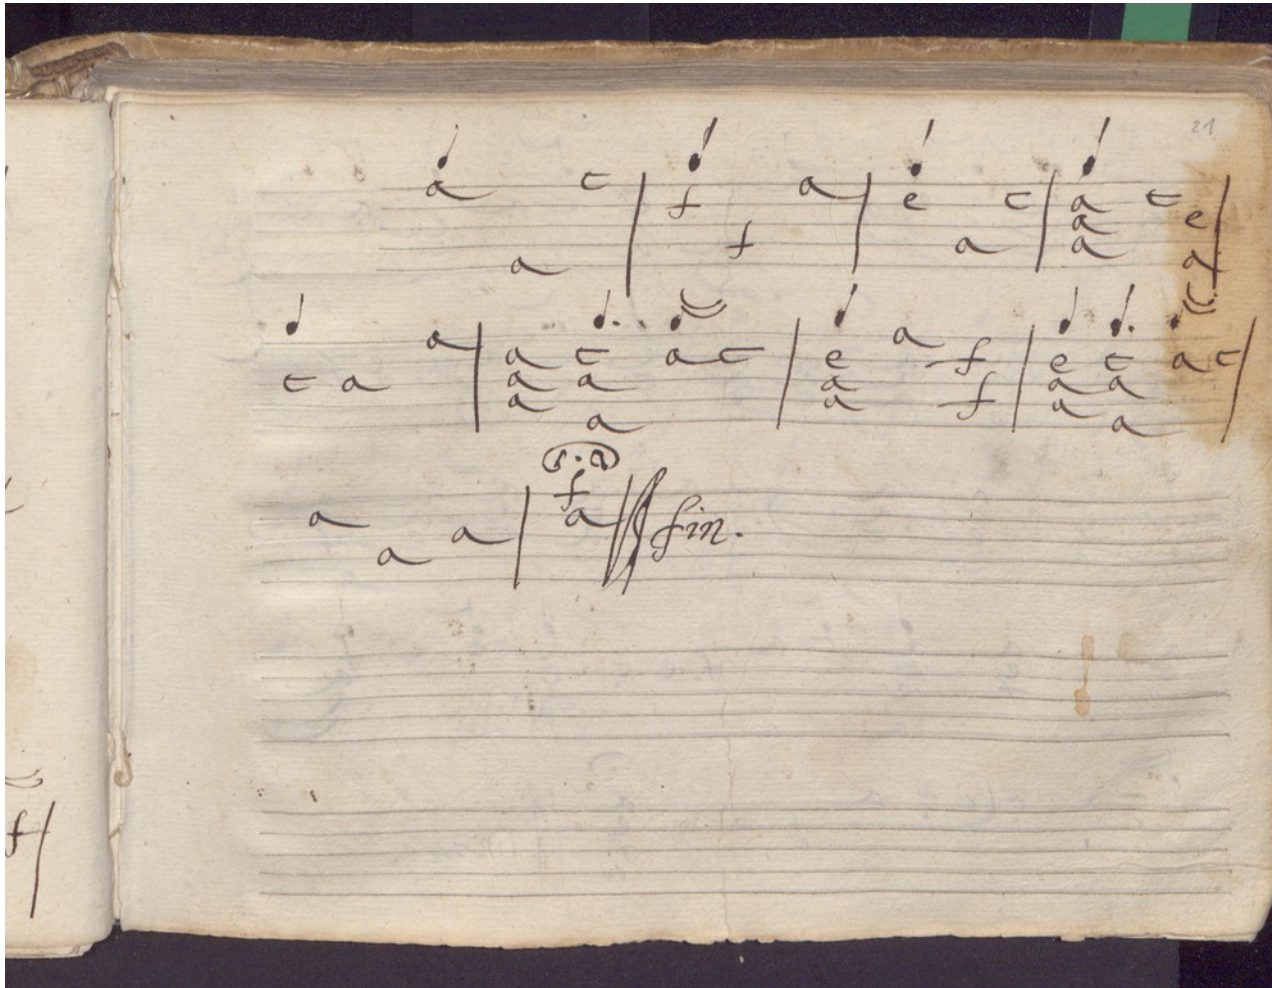 21
a c f a e c a c
a f a a e
a a
a a c a c e a f e c a c
c a a a a f a a
a a a a
a
f
a a
a a fin.
f